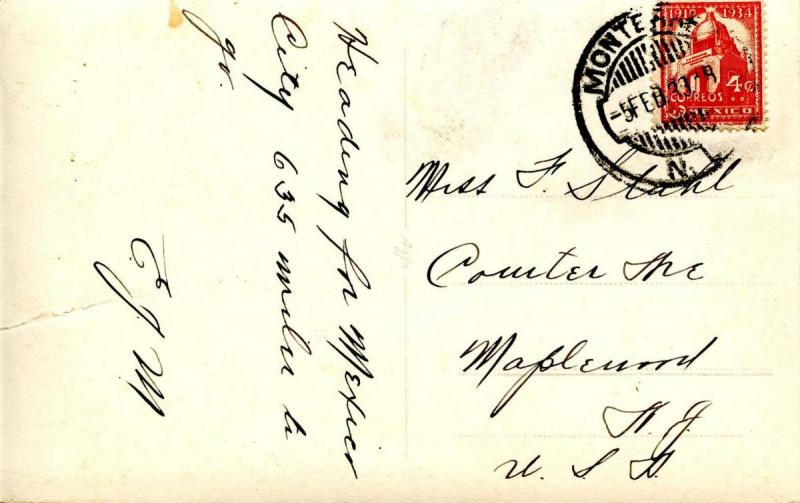 Heading for Mexico
City 635 miles to
go.
E. J. M
1910 1934
4c
CORREOS
MEXICO
MONTE
-5 FEB
N.
Miss F. Stahl
Courter Ave
Maplewood
N. J.
U. S. A.